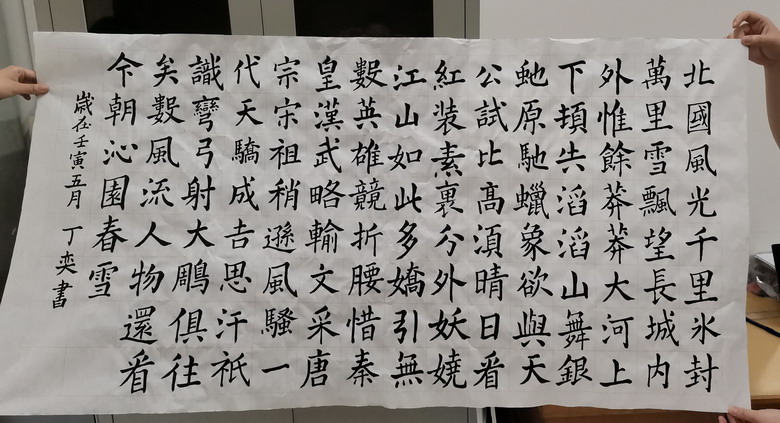 北國風光千里氷封
萬里雪飄望長城内
外惟餘莽莽大河上
下頓失滔滔山舞銀
虵原馳蠟象欲與天
公試比高湏晴日看
紅装素裏分外妖嬈
江山如此多嬌引無
數英雄競折腰惜秦
皇漢武略輸文采唐
宗宋祖稍遜風騷一
代天驕成吉思汗祇
識彎弓射大鵰俱往
矣數風流人物還看
今朝沁園春雪
歲在壬寅五月 丁奕書